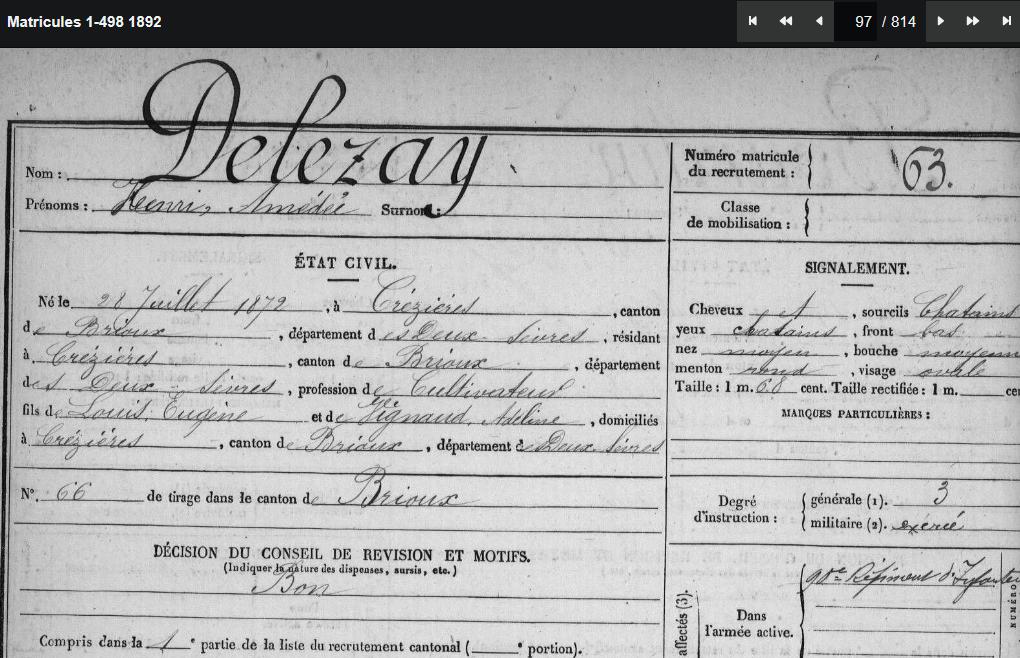 Matricules 1-498 1892
97 / 814
Delezay
Nom :
Prénoms : Henri, Amédée Surnom :
Numéro matricule du recrutement : 63.
Classe de mobilisation :
ÉTAT CIVIL.
Né le 28 Juillet 1872, à Crézières, canton
de Brioux, département des Deux Sèvres, résidant
à Crézières, canton de Brioux, département
des Deux-Sèvres, profession de Cultivateur
fils de Louis Eugène et de Vignaud, Adeline, domiciliés
à Crézières, canton de Brioux, département de Deux-Sèvres
N°. 66 de tirage dans le canton de Brioux
DÉCISION DU CONSEIL DE REVISION ET MOTIFS.
(Indiquer la nature des dispenses, sursis, etc.)
Bon
Compris dans la 1e partie de la liste du recrutement cantonal ( e portion).
SIGNALEMENT.
Cheveux et, sourcils Chatains
yeux chatains, front bas
nez moyen, bouche moyenne
menton rond, visage ovale
Taille : 1 m. 68 cent. Taille rectifiée : 1 m. cen
MARQUES PARTICULIÈRES :
Degré d'instruction :
générale (1). 3
militaire (2). exercé
affectés (3).
Dans l'armée active.
90e Régiment d'Infanter
NUMÉRO